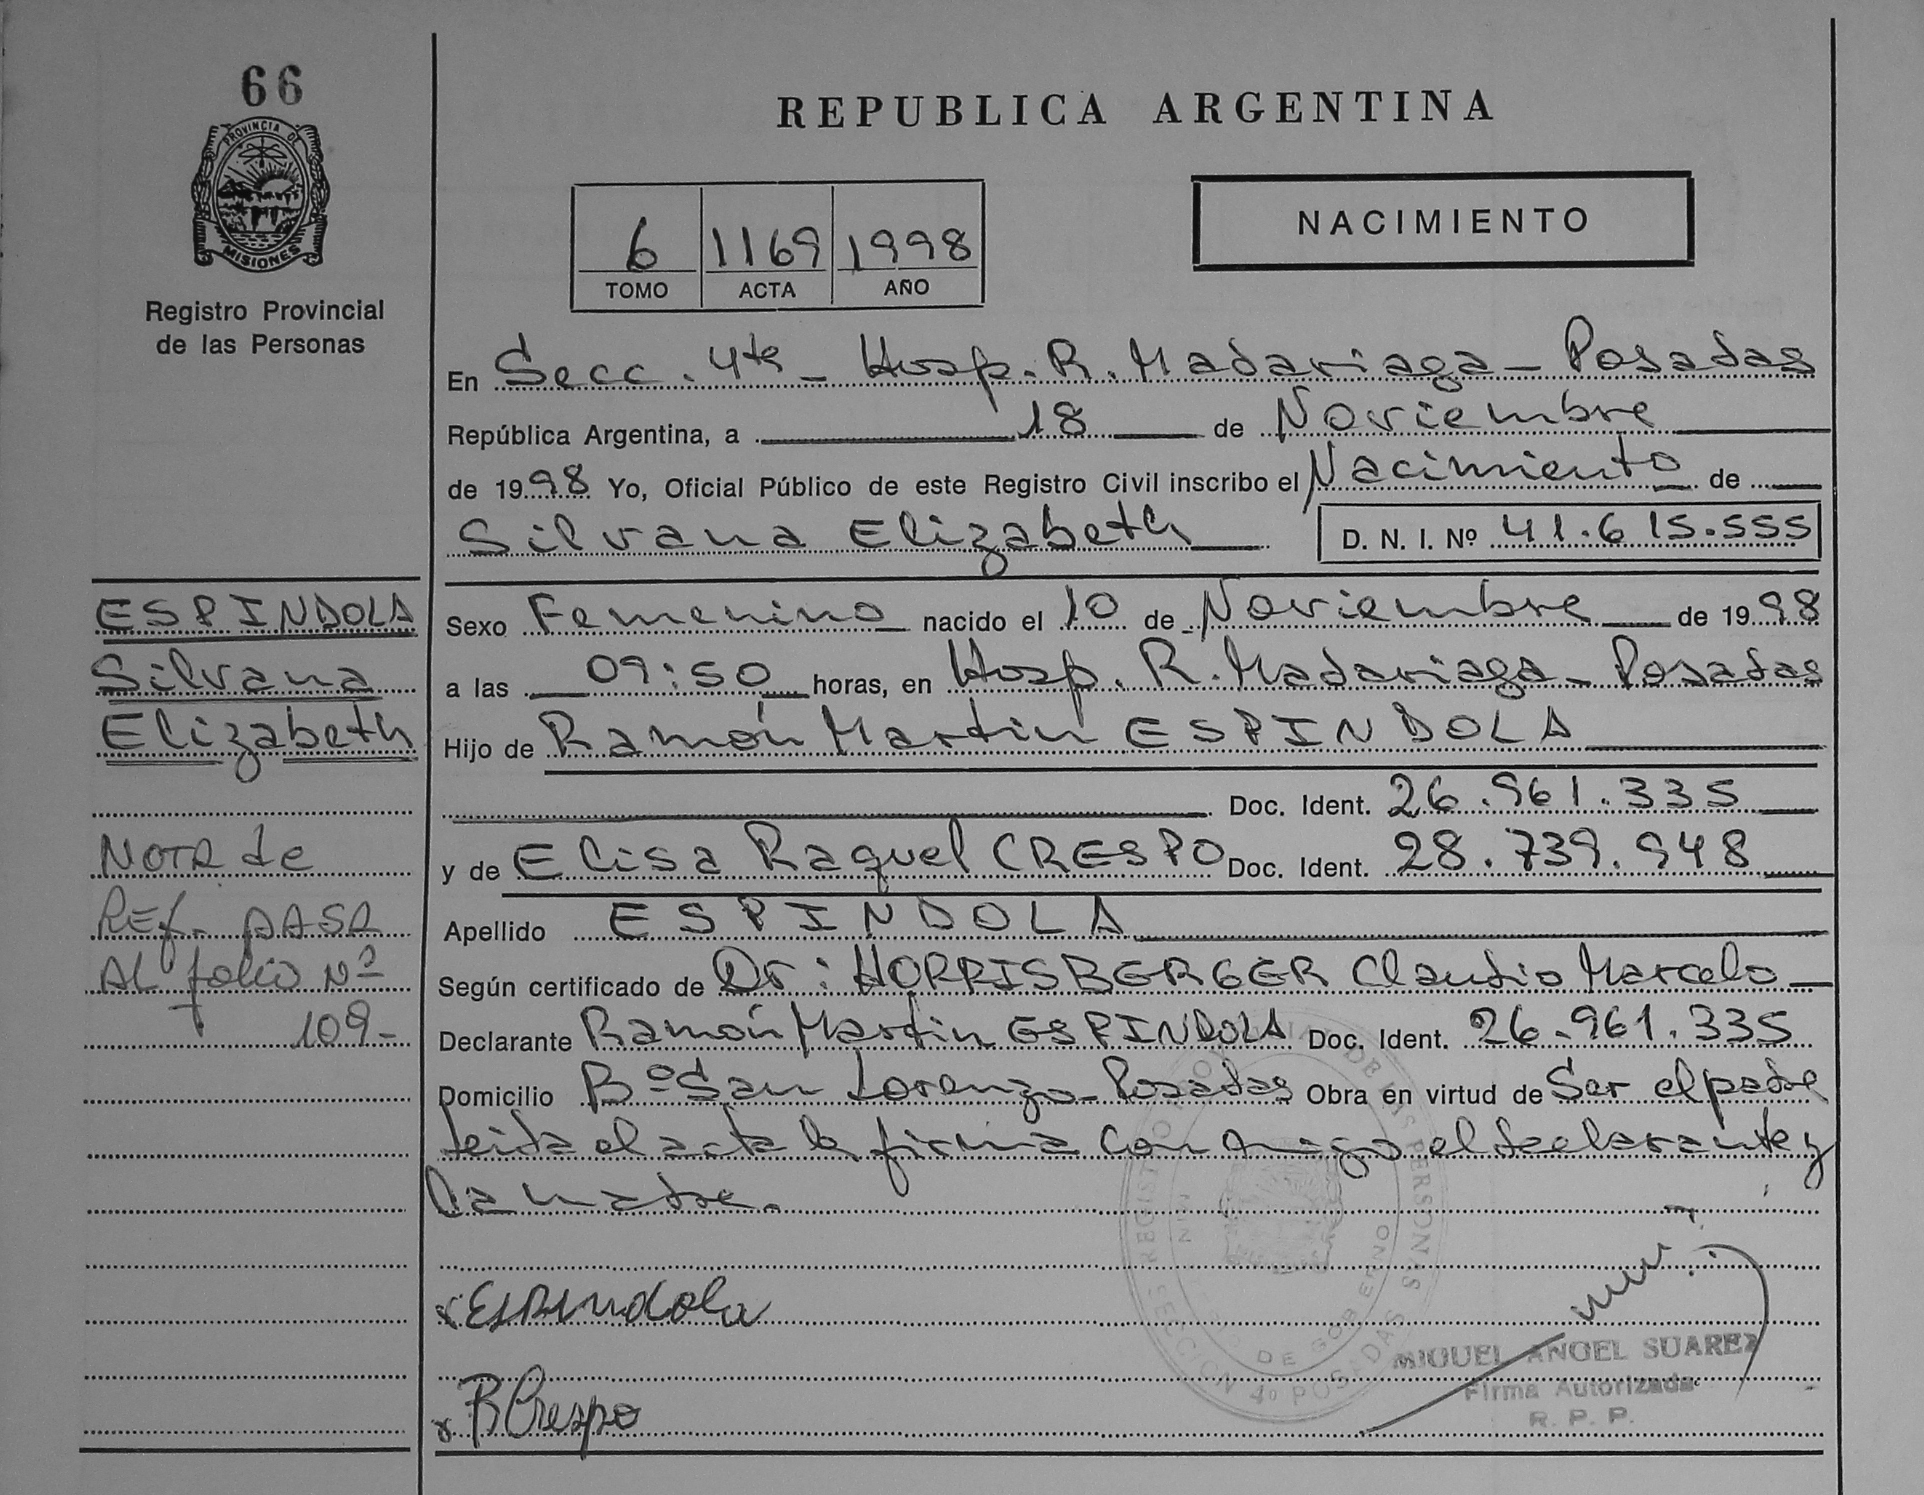 66
PROVINCIA DE
MISIONES
Registro Provincial
de las Personas
REPUBLICA ARGENTINA
NACIMIENTO
6 1169 1998
TOMO ACTA AÑO
En Secc. 4ta - Hosp. R. Madariaga - Posadas
República Argentina, a 18 de Noviembre
de 1998 Yo, Oficial Público de este Registro Civil inscribo el Nacimiento de
Silvana Elizabeth D. N. I. Nº 41.615.555
Sexo Femenino nacido el 10 de Noviembre de 1998
a las 09:50 horas, en Hosp. R. Madariaga - Posadas
Hijo de Ramón Martin ESPINDOLA
Doc. Ident. 26.961.335
y de Elisa Raquel CRESPO Doc. Ident. 28.739.948
Apellido ESPINDOLA
Según certificado de Dr: HORRISBERGER Claudio Marcelo
Declarante Ramón Martin ESPINDOLA Doc. Ident. 26.961.335
Domicilio Bº San Lorenzo - Posadas Obra en virtud de Ser el padre
leida el acta la firma conmigo el declarante y
la madre.
ESPINDOLA
Silvana
Elizabeth
NOTA de
REf. PASA
AL folio Nº
109-
Espindola
R Crespo
REGISTRO PROVINCIAL DE LAS PERSONAS
DE GOBIERNO
SECCION 4º POSADAS
MIGUEL ANGEL SUAREZ
Firma Autorizada
R. P. P.